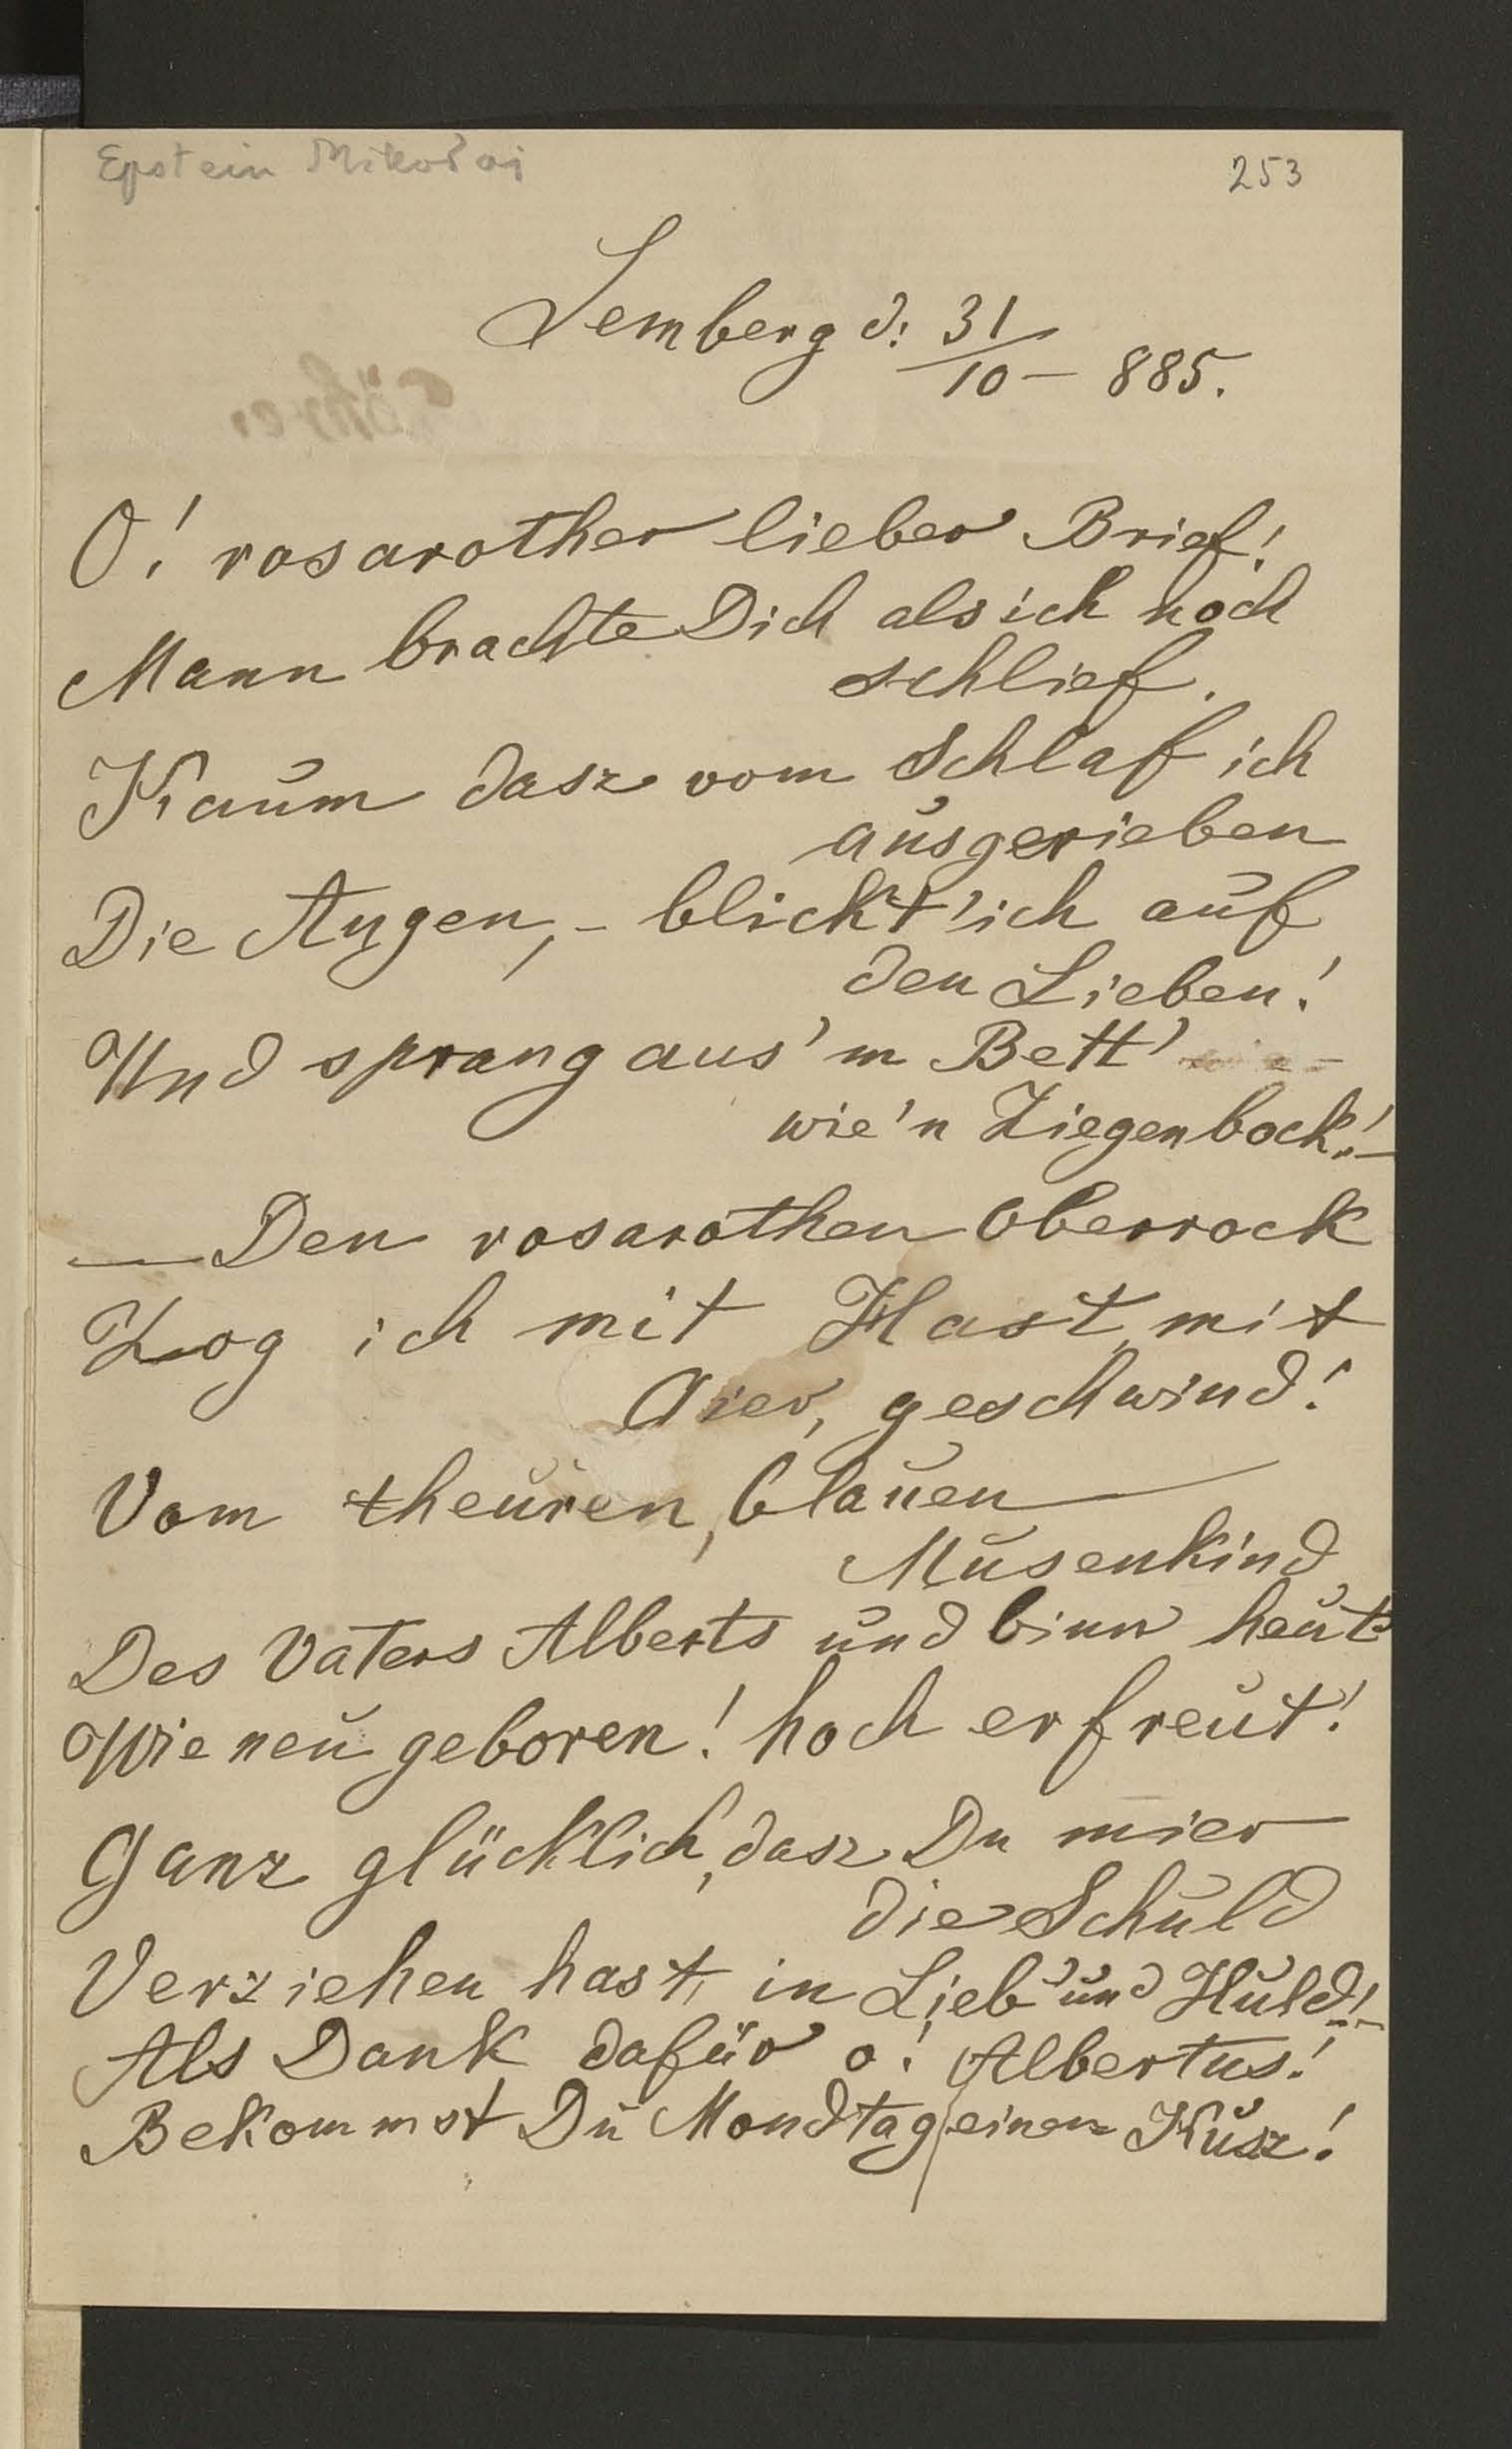 Epstein Mikołaj
253
Lemberg d: 31/10 – 885.
O! rosarother lieber Brief!
Mann brachte Dich als ich noch
schlief.
Kaum dasz vom Schlaf ich
ausgerieben
Die Augen, – blickt' ich auf
den Lieben!
Und sprang aus'm Bett'
wie'n Ziegenbock! –
— Den rosarothen Oberrock
Zog ich mit Hast, mit
Gier, geschwind!
Vom theuren, blauen
Musenkind
Des Vaters Alberts und binn heut
Wie neu geboren! hoch erfreut!
Ganz glücklich, dasz Du mier
die Schuld
Verziehen hast, in Lieb' und Huld! –
Als Dank dafür o! Albertus!
Bekommst Du Mondtag einen Kusz!